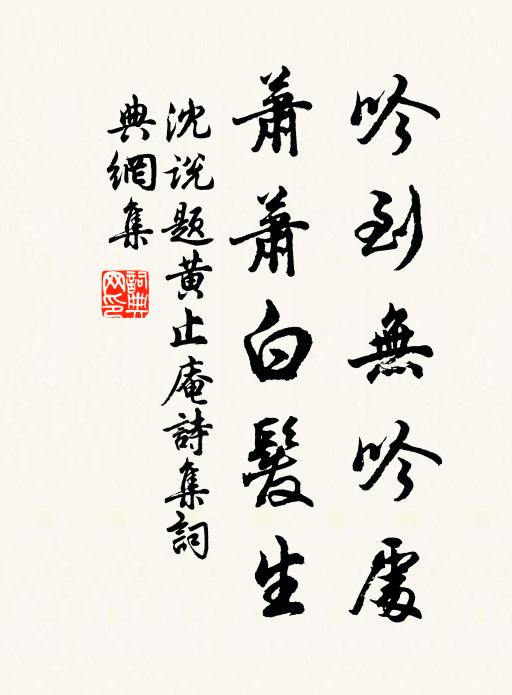 吟到無吟處
蕭蕭白髮生
沈説題黃止庵詩集詞
典網集
詞典
网印